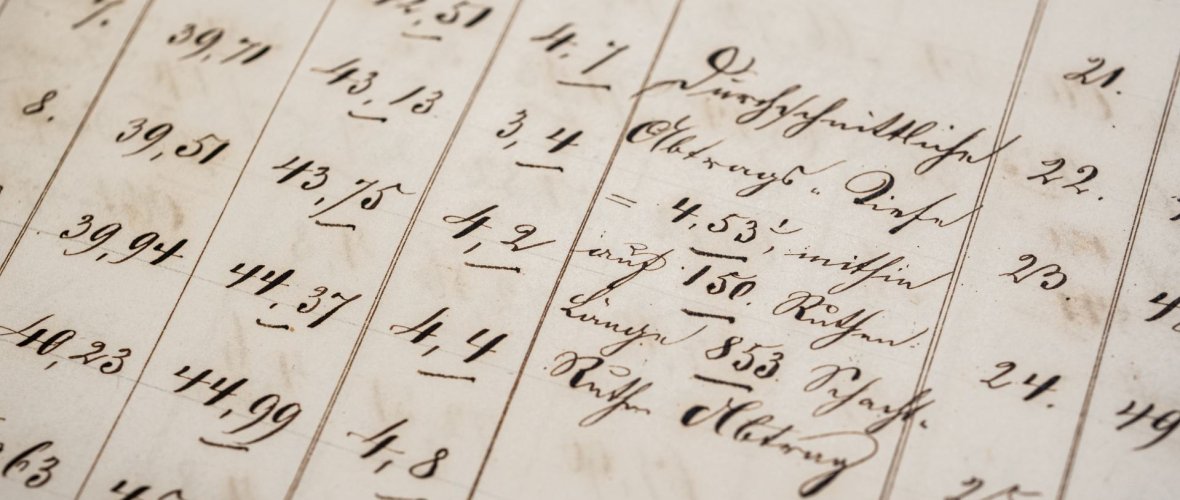 7. 39,71 42,51 4,7
8. 39,51 43,13 3,4
39,94 43,75 4,2
40,23 44,37 4,4
63 44,99 4,8
45
Durchschnittliche
Abtrags-Tiefe
= 4,53', mithin
auf 150 Ruthen
Länge 853 Schacht-
Ruthen Abtrag
21.
22.
23.
24.
25
49